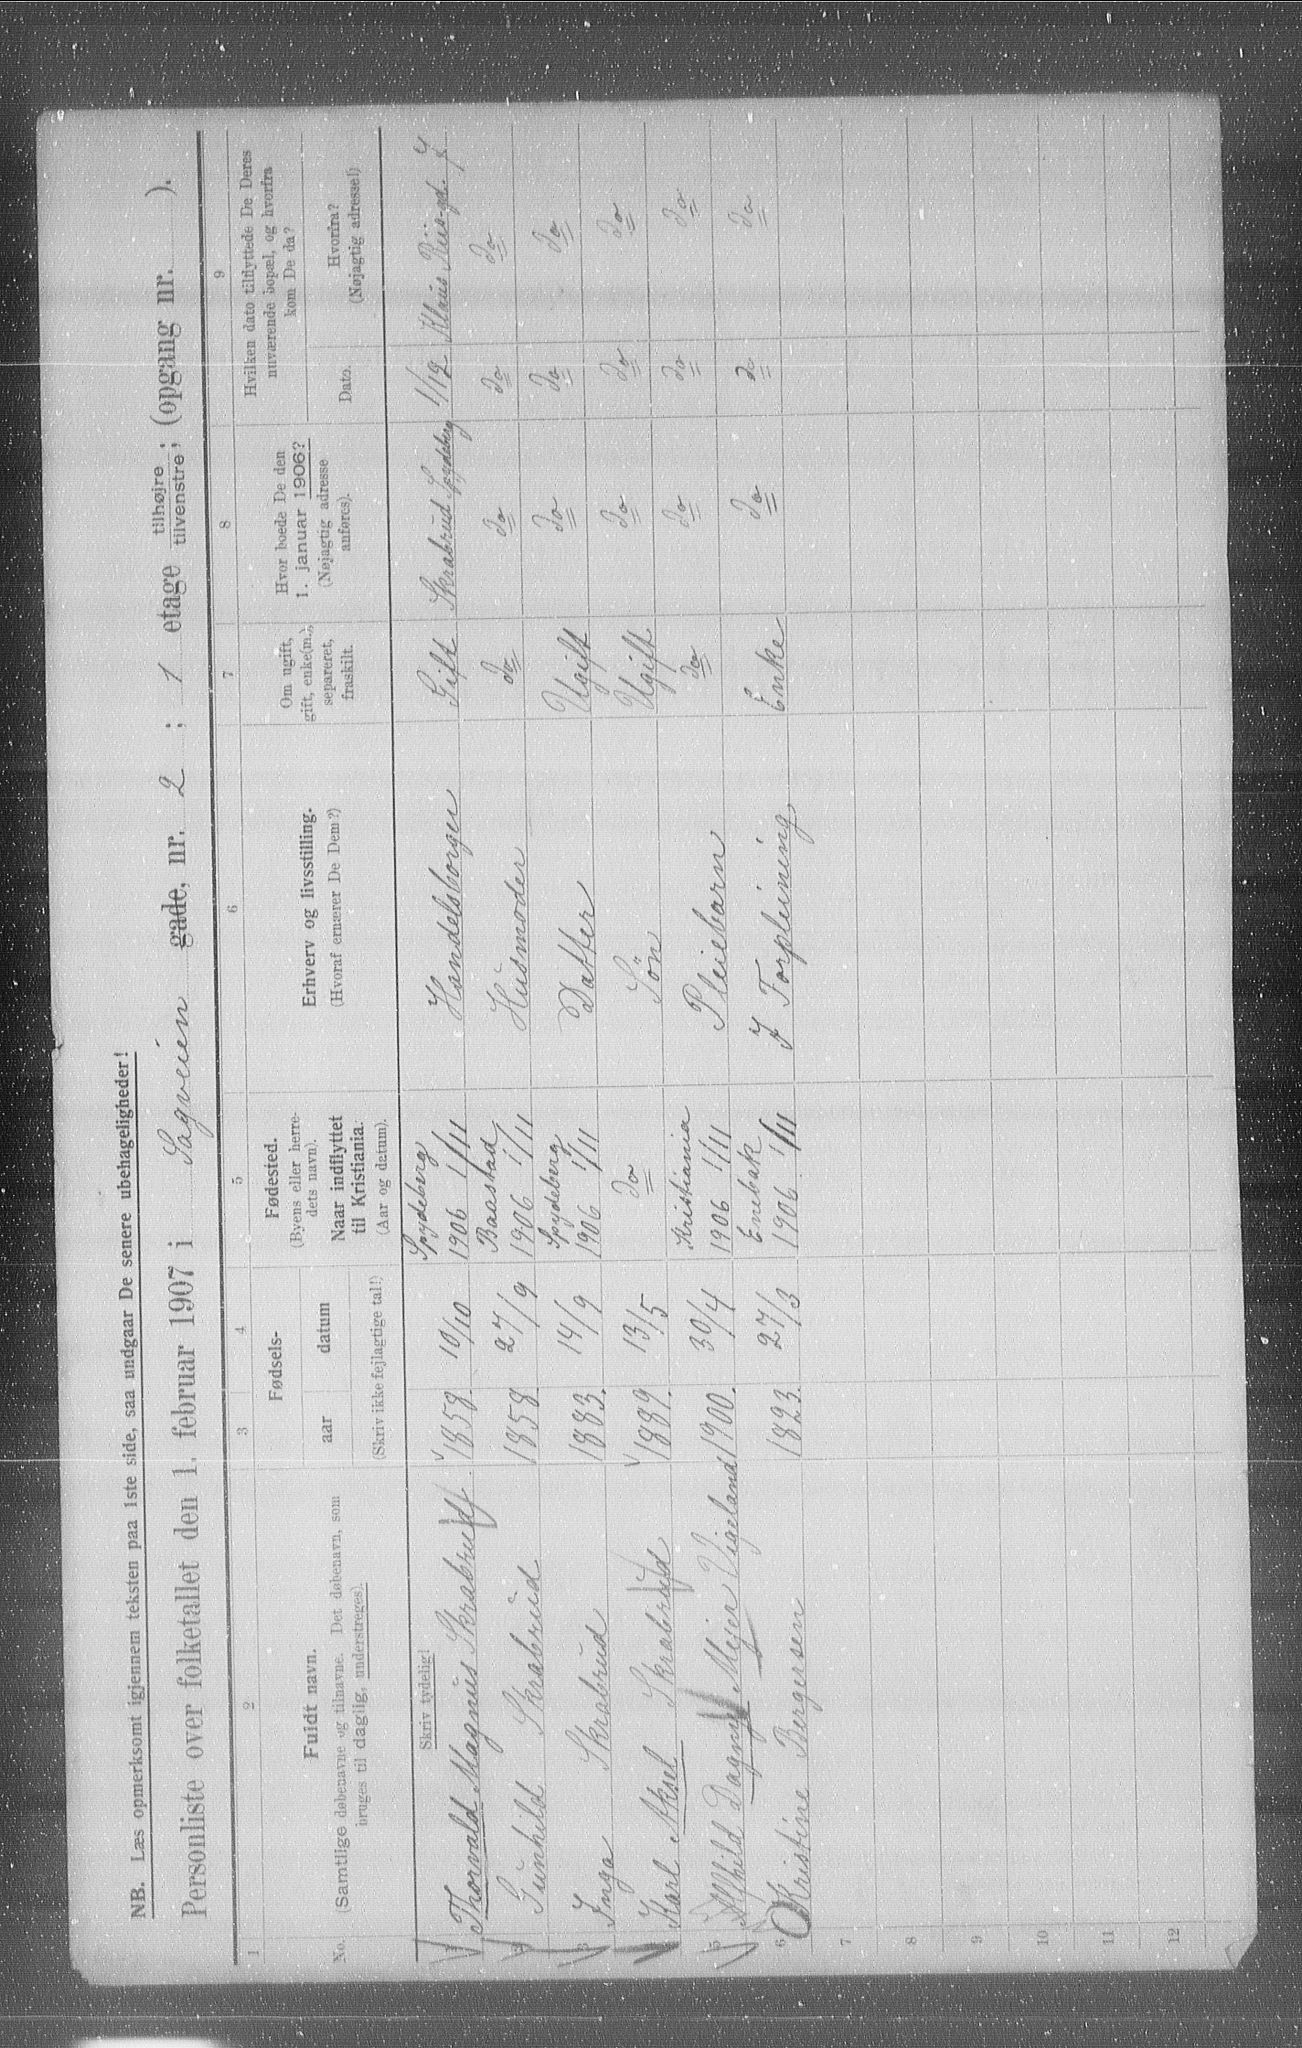 NB. Læs opmerksomt igjennem teksten paa 1ste side, saa undgaar De senere ubehageligheder!
Personliste over folketallet den 1. februar 1907 i Sagveien gade, nr. 2 ; 1 etage tilhøjre tilvenstre; (opgang nr. ).
1 2 3 4 5 6 7 8 9
No.
Fuldt navn.
(Samtlige døbenavne og tilnavne. Det døbenavn, som
bruges til daglig, understreges).
Fødsels-
aar datum
(Skriv ikke fejlagtige tal!)
Fødested.
(Byens eller herre-
dets navn).
Naar indflyttet
til Kristiania.
(Aar og datum).
Erhverv og livsstilling.
(Hvoraf ernærer De Dem?)
Om ugift,
gift, enke(m.),
separeret,
fraskilt.
Hvor boede De den
1. januar 1906?
(Nøjagtig adresse
anføres).
Hvilken dato tilflyttede De Deres
nuværende bopæl, og hvorfra
kom De da?
Dato.
Hvorfra?
(Nøjagtig adresse!)
Skriv tydelig!
1 Thorvald Magnus Skrabrud 1858. 10/10 Spydeberg 1906 1/11 Handelsborger Gift Skrabrud Spydeberg 1/12 Klaus Riis-gd. 7
2 Gunhild Skrabrud 1858. 27/9 Baastad 1906 1/11 Husmoder do do do do
3 Inga Skrabrud 1883. 14/9 Spydeberg 1906 1/11 Datter Ugift do do do
4 Karl Aksel Skrabrud 1889. 13/5 do Sön Ugift do do do
5 Alfhild Dagny Mejer Vigeland 1900. 30/4 Kristiania 1906 1/11 Pleiebarn do do do do
6 Kristine Bergersen 1823. 27/3 Enebak 1906 1/11 I Forpleining Enke do do do
7
8
9
10
11
12